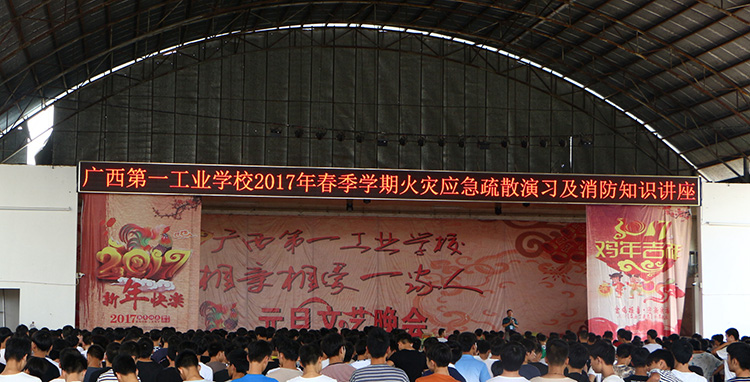 广西第一工业学校2017年春季学期火灾应急疏散演习及消防知识讲座
2017
新年快乐
广西第一工业学校
相亲相爱一家人
元旦文艺晚会
2017
鸡年吉祥